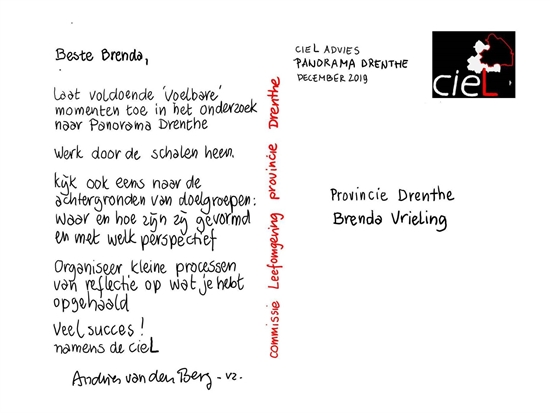 Beste Brenda,
Laat voldoende 'voelbare'
momenten toe in het onderzoek
naar Panorama Drenthe
Werk door de schalen heen.
kijk ook eens naar de
achtergronden van doelgroepen:
waar en hoe zijn zij gevormd
en met welk perspectief
Organiseer kleine processen
van reflectie op wat je hebt
opgehaald
Veel succes!
namens de cieL
Andries van den Berg - vz.
commissie Leefomgeving provincie Drenthe
CIEL ADVIES
PANORAMA DRENTHE
DECEMBER 2019
cieL
Provincie Drenthe
Brenda Vrieling